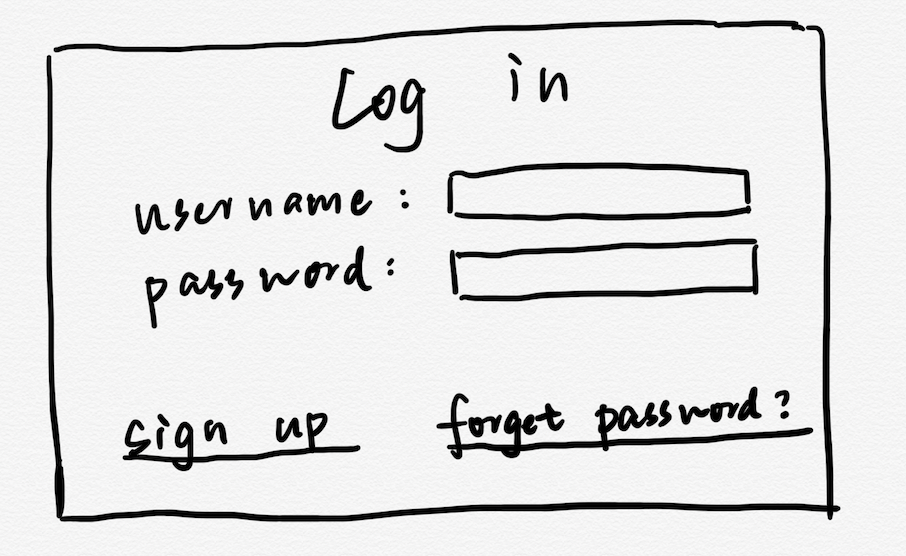 Log in
username:
password:
sign up forget password?